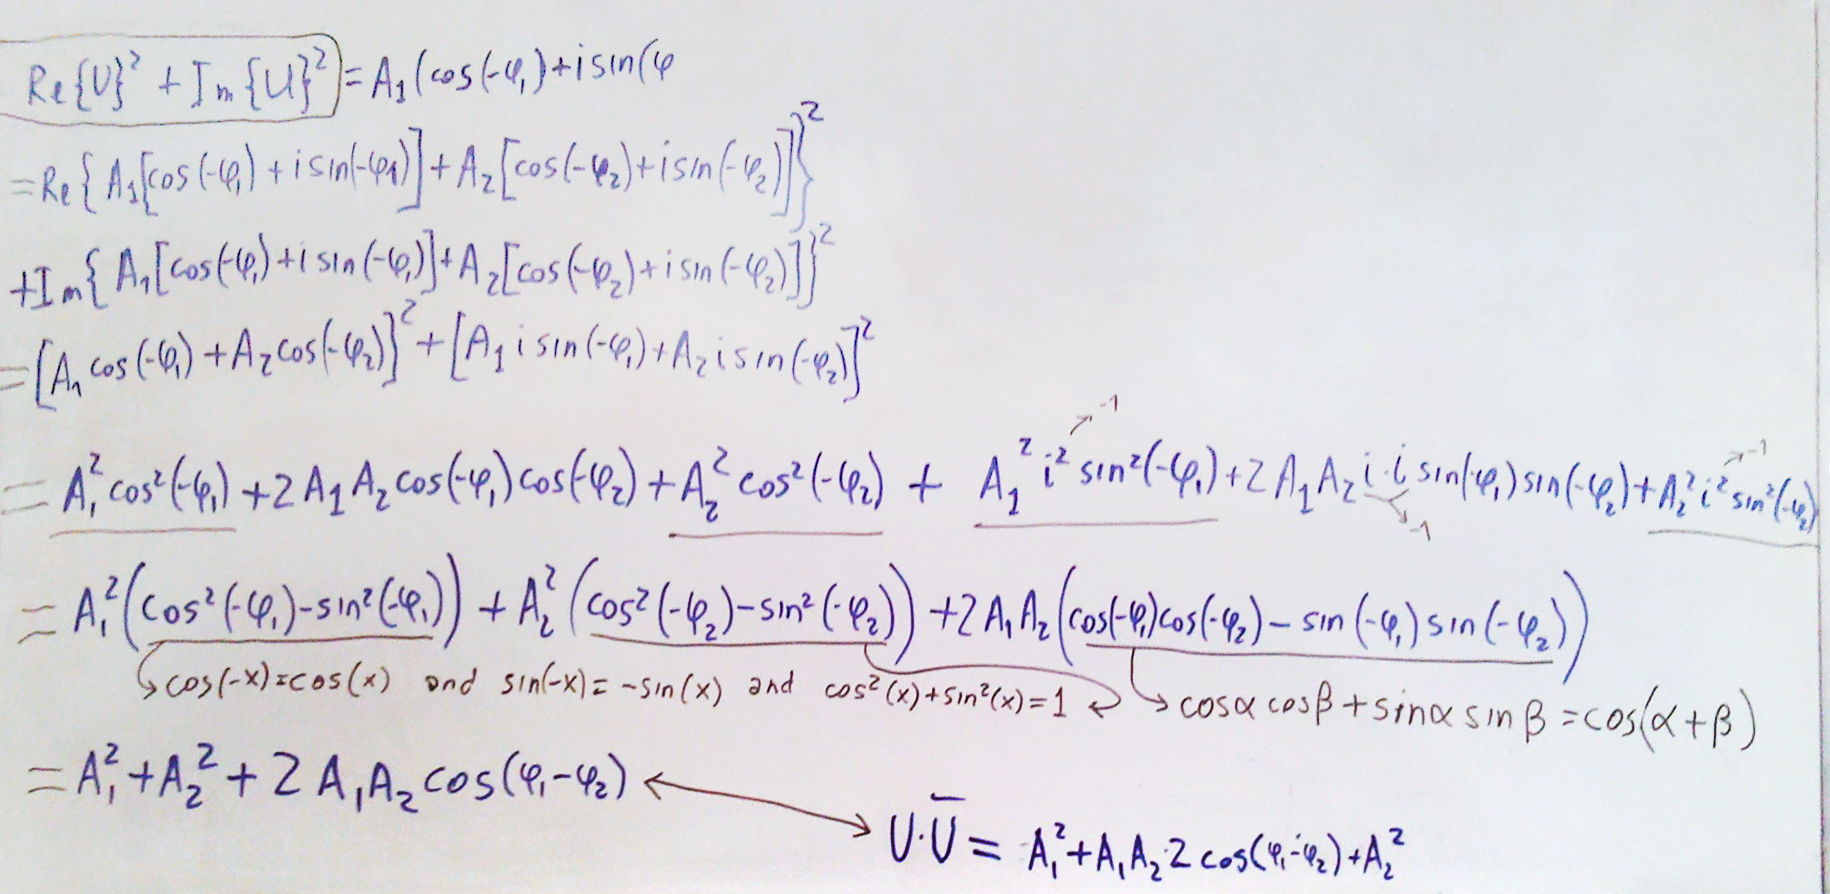 Re{U}² + Im{U}² = A₁(cos(-φ₁)+isin(φ
=Re{A₁[cos(-φ₁)+isin(-φ₁)]+A₂[cos(-φ₂)+isin(-φ₂)]}²
+Im{A₁[cos(-φ₁)+isin(-φ₁)]+A₂[cos(-φ₂)+isin(-φ₂)]}²
=[A₁cos(-φ₁)+A₂cos(-φ₂)]²+[A₁isin(-φ₁)+A₂isin(-φ₂)]²
-1
-1
= A₁²cos²(-φ₁)+2A₁A₂cos(-φ₁)cos(-φ₂)+A₂²cos²(-φ₂) + A₁²i²sin²(-φ₁)+2A₁A₂i·i sin(-φ₁)sin(-φ₂)+A₂²i²sin²(-φ₂)
-1
= A₁²(cos²(-φ₁)-sin²(-φ₁)) + A₂²(cos²(-φ₂)-sin²(-φ₂)) +2A₁A₂(cos(-φ₁)cos(-φ₂)-sin(-φ₁)sin(-φ₂))
cos(-x)=cos(x) and sin(-x)=-sin(x) and cos²(x)+sin²(x)=1
cosα cosβ+sinα sinβ=cos(α+β)
= A₁²+A₂²+2A₁A₂cos(φ₁-φ₂)
U·Ū = A₁²+A₁A₂·2cos(φ₁-φ₂)+A₂²